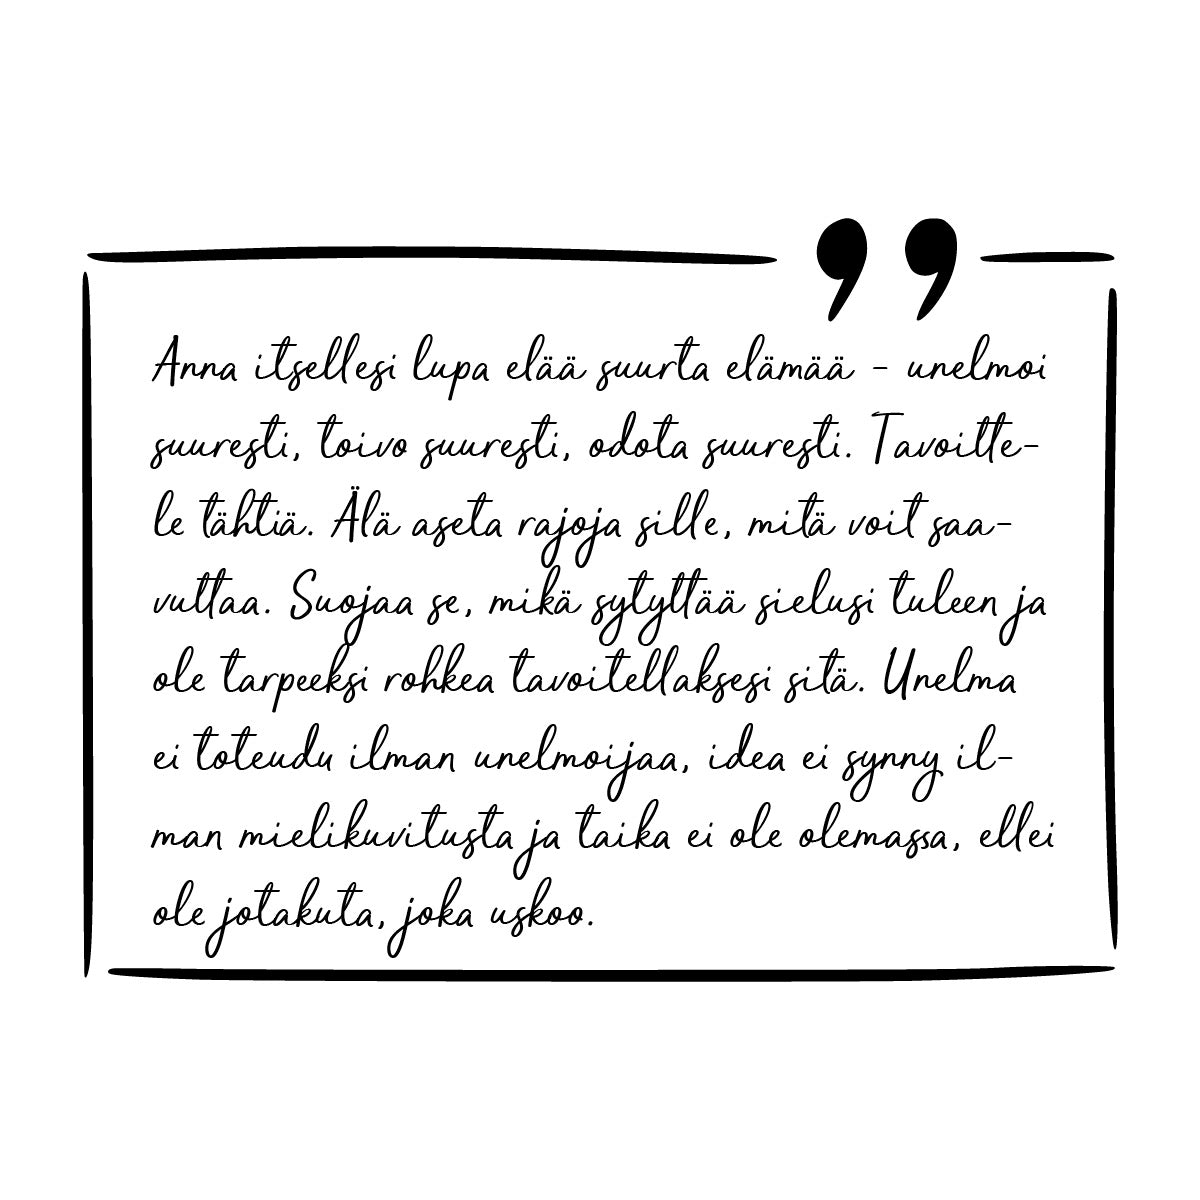 Anna itsellesi lupa elää suurta elämää - unelmoi
suuresti, toivo suuresti, odota suuresti. Tavoitte-
le tähtiä. Älä aseta rajoja sille, mitä voit saa-
vuttaa. Suojaa se, mikä sytyttää sielusi tuleen ja
ole tarpeeksi rohkea tavoitellaksesi sitä. Unelma
ei toteudu ilman unelmoijaa, idea ei synny il-
man mielikuvitusta ja taika ei ole olemassa, ellei
ole jotakuta, joka uskoo.